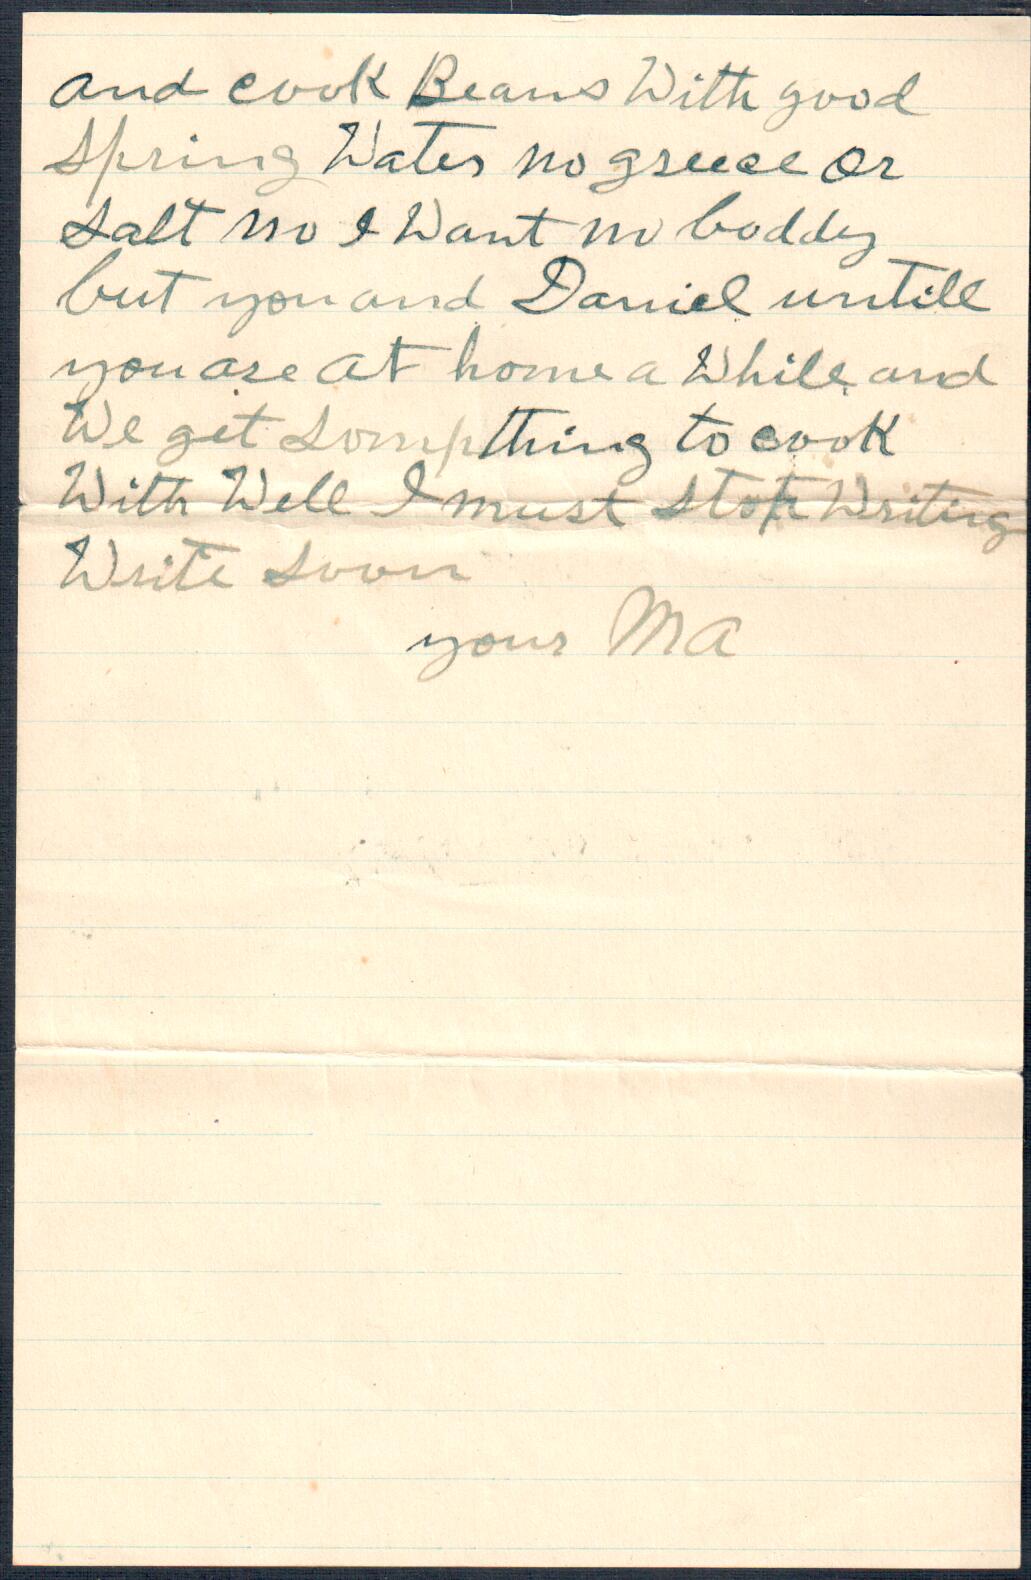 and cook Beans With good
Spring Water no greece or
Salt no I Want no boddy
but you and Daniel untill
you are at home a While and
We get Sompthing to cook
With Well I must Stop Writing
Write Soon
your MA